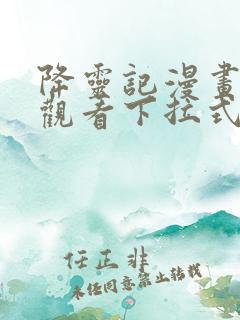 降靈記漫畫
觀看下拉式
任正非
未经同意禁止转载